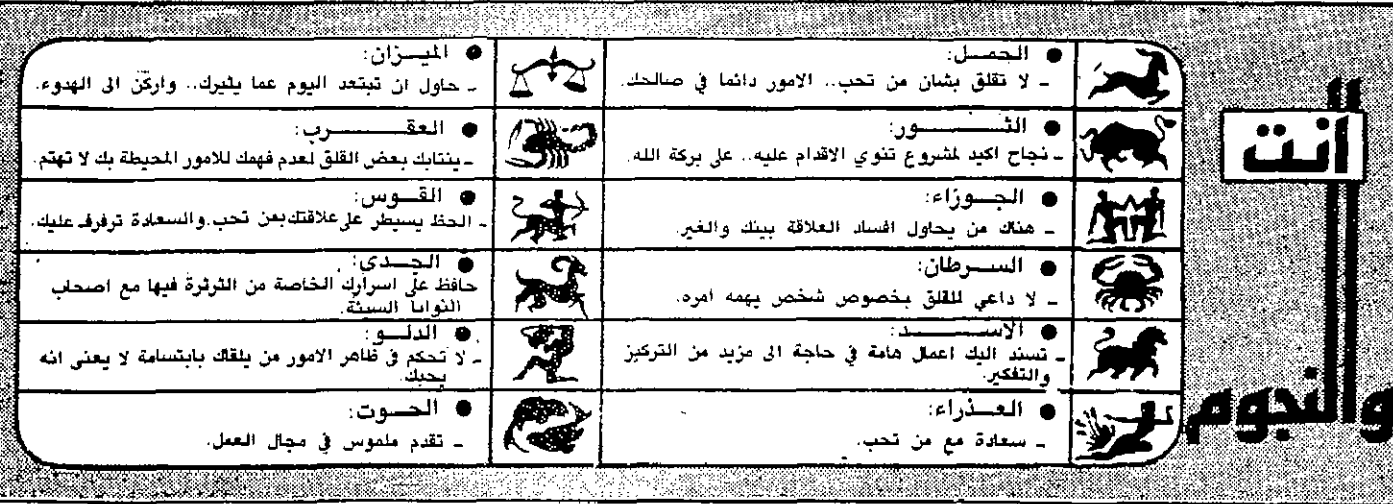 أنت
والنجوم
● الحمــل:
ـ لا تقلق بشان من تحب.. الامور دائما في صالحك.
● الثــــــور:
ـ نجاح اكيد لمشروع تنوي الاقدام عليه.. على بركة الله.
● الجــوزاء:
ـ هناك من يحاول افساد العلاقة بينك والغير.
● الســرطان:
ـ لا داعي للقلق بخصوص شخص يهمه امره.
● الاســـــــد:
ـ تسند اليك اعمال هامة في حاجة الى مزيد من التركيز
والتفكير.
● العــذراء:
ـ سعادة مع من تحب.
● الميــزان:
ـ حاول ان تبتعد اليوم عما يثيرك.. واركن الى الهدوء.
● العقـــــــرب:
ـ ينتابك بعض القلق لعدم فهمك للامور المحيطة بك لا تهتم.
● القــوس:
ـ الحظ يسيطر على علاقتك بمن تحب.والسعادة ترفرف عليك.
● الجــدي:
حافظ على اسرارك الخاصة من الثرثرة فيها مع اصحاب
النوايا السيئة.
● الدلــو:
ـ لا تحكم في ظاهر الامور من يلقاك بابتسامة لا يعنى انه
يحبك.
● الحــوت:
ـ تقدم ملموس في مجال العمل.